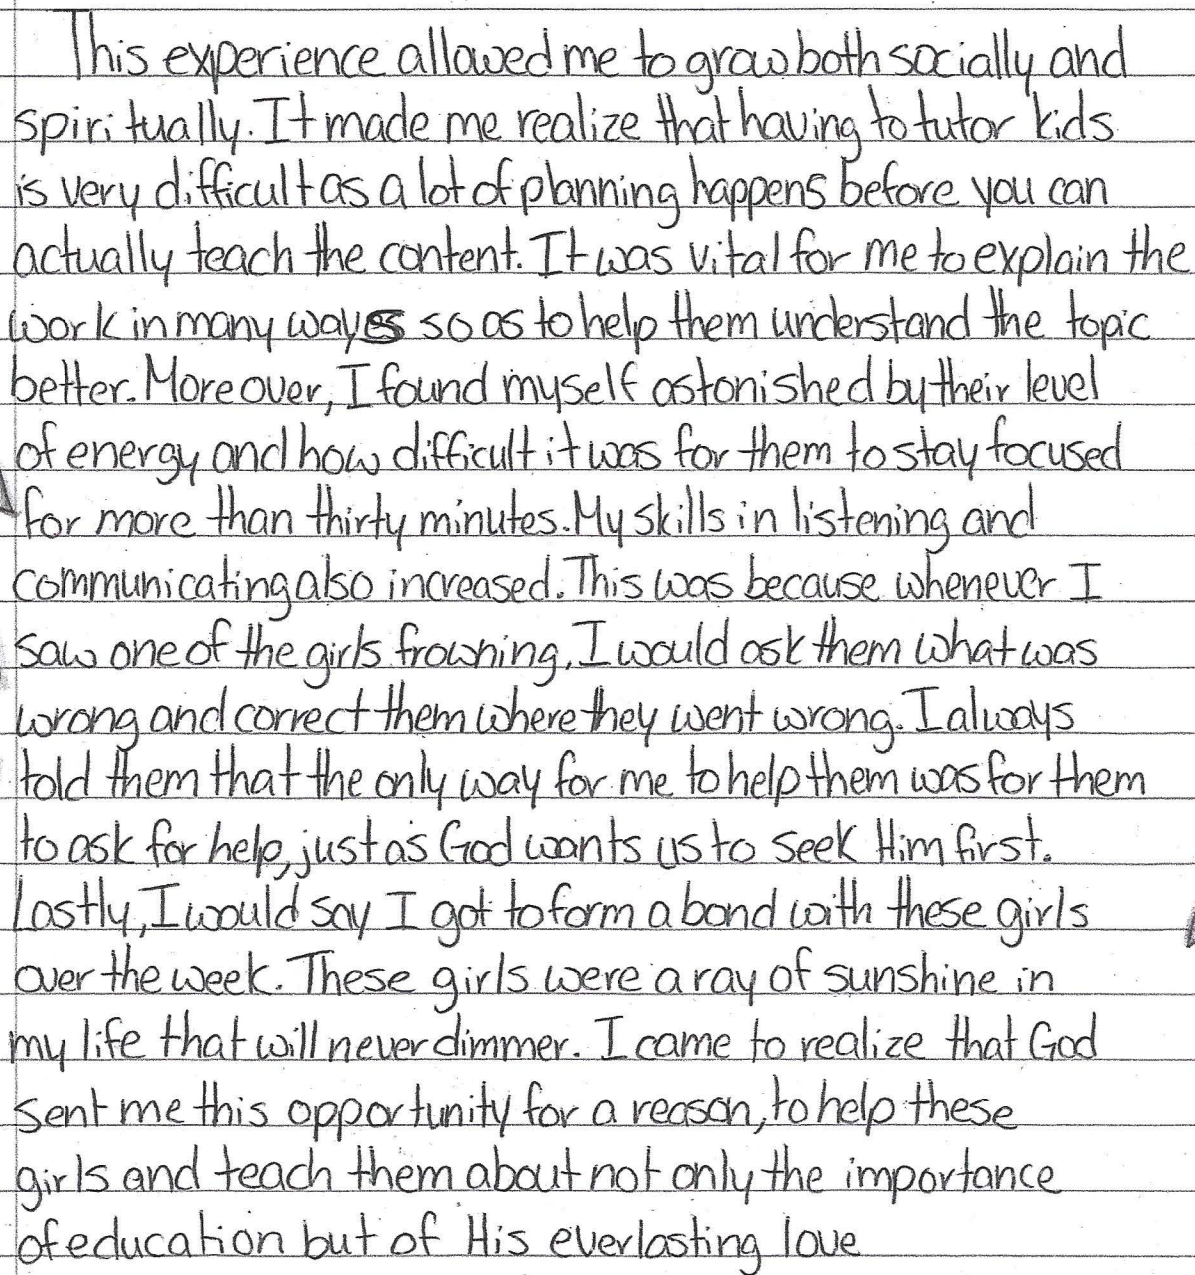 This experience allowed me to grow both socially and
spiritually. It made me realize that having to tutor kids
is very difficult as a lot of planning happens before you can
actually teach the content. It was vital for me to explain the
work in many ways so as to help them understand the topic
better. Moreover, I found myself astonished by their level
of energy and how difficult it was for them to stay focused
for more than thirty minutes. My skills in listening and
communicating also increased. This was because whenever I
saw one of the girls frowning, I would ask them what was
wrong and correct them where they went wrong. I always
told them that the only way for me to help them was for them
to ask for help, just as God wants us to seek Him first.
Lastly, I would say I got to form a bond with these girls
over the week. These girls were a ray of sunshine in
my life that will never dimmer. I came to realize that God
sent me this opportunity for a reason, to help these
girls and teach them about not only the importance
of education but of His everlasting love